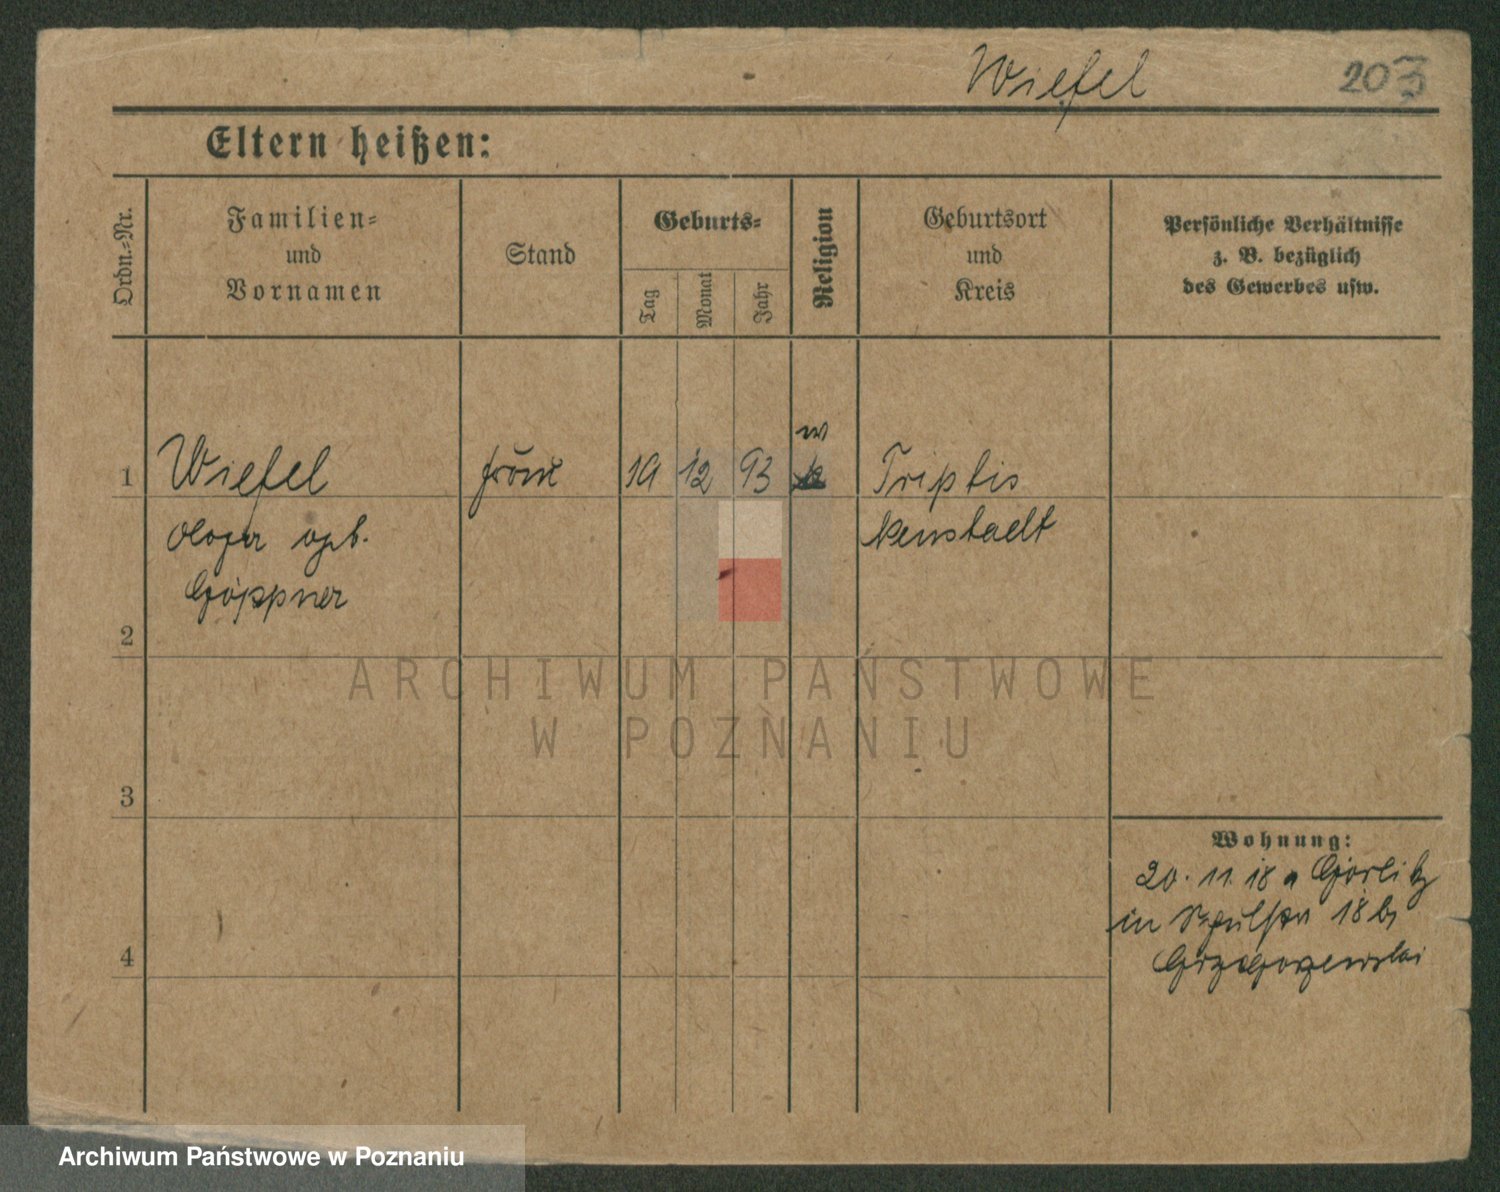 Wiefel
203
Eltern heißen:
Ordn.=Nr.
Familien=
und
Vornamen
Stand
Geburts=
Tag
Monat
Jahr
Religion
Geburtsort
und
Kreis
Persönliche Verhältnisse
z. B. bezüglich
des Gewerbes usw.
1
Wiefel
19
12
93
Triptis
geb.
Neustadt
Göppner
2
ARCHIWUM PAŃSTWOWE
W POZNANIU
3
Wohnung:
20. 11. 18 Görlitz
in 18
4
Archiwum Państwowe w Poznaniu